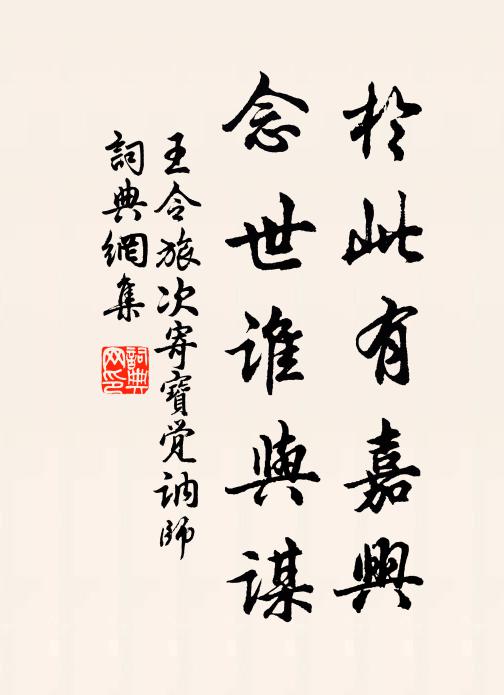 於此有嘉興
念世誰與謀
王令旅次寄寶覺訥師
詞典網集
詞典網印